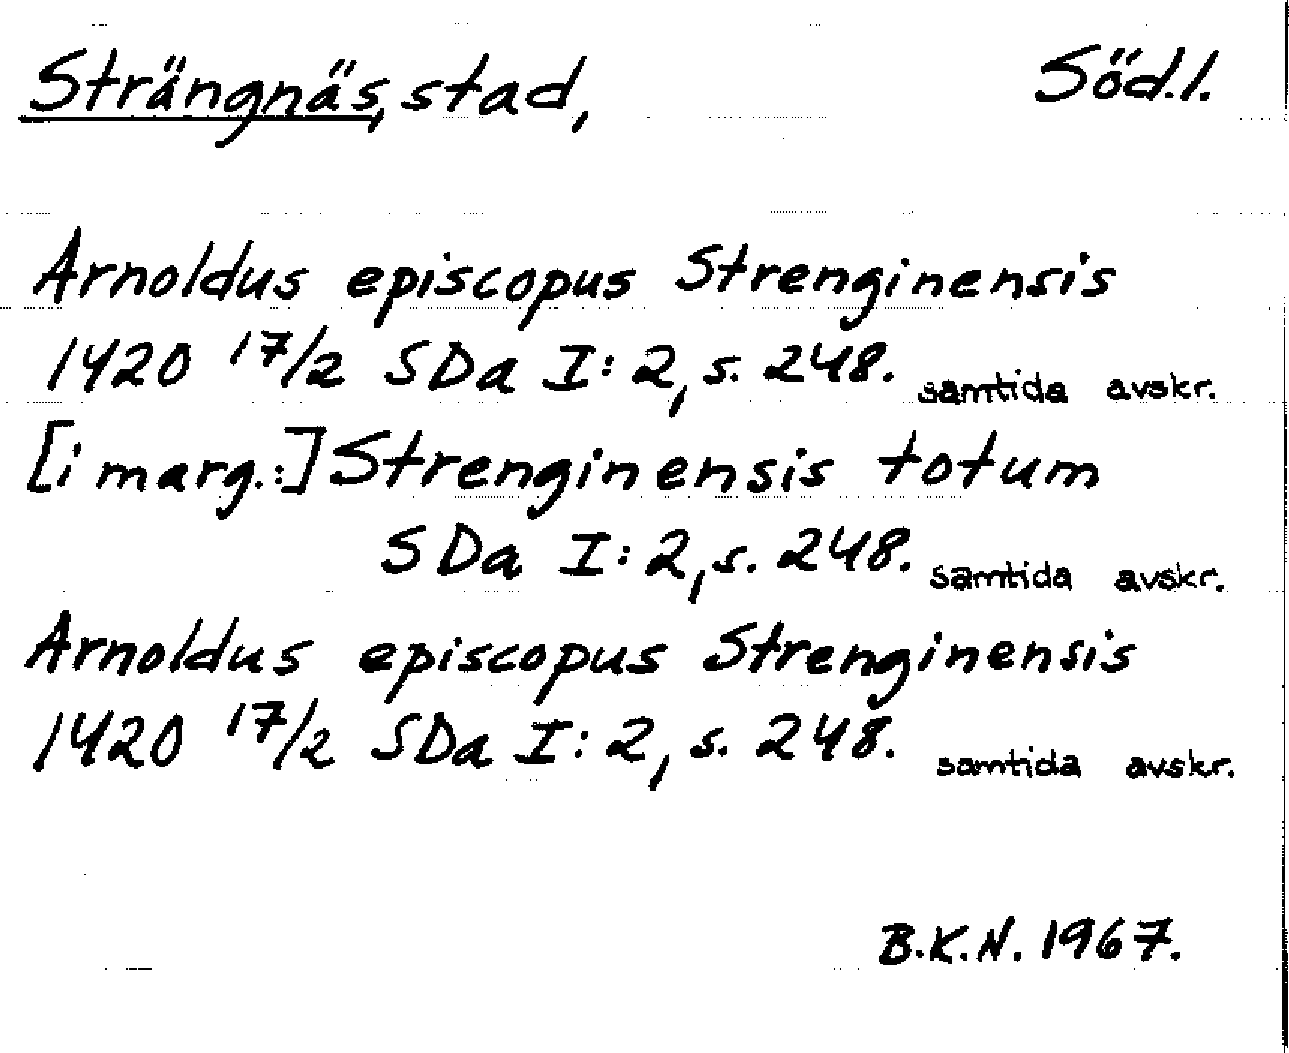 Strängnäs, stad, Söd.l.
Arnoldus episcopus Strenginensis
1420 17/2 SDa I:2, s. 248. samtida avskr.
[i marg.:] Strenginensis totum
SDa I:2, s. 248. samtida avskr.
Arnoldus episcopus Strenginensis
1420 17/2 SDa I:2, s. 248. samtida avskr.
B.K.N. 1967.